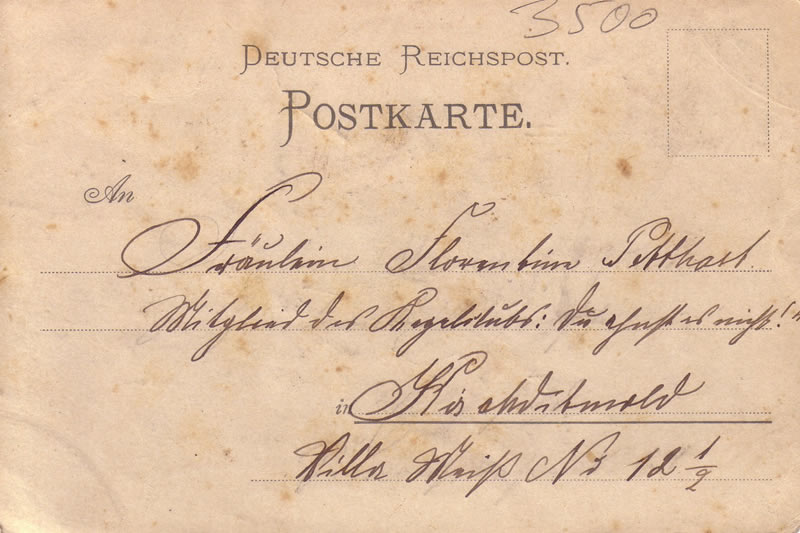 3500
DEUTSCHE REICHSPOST.
POSTKARTE.
An
Fräulein Florentine Potthast.
Mitglied des Kegelclubs: Du ahnst es nicht!"
in Kirchditmold
Villa Weiß No 12 1/2